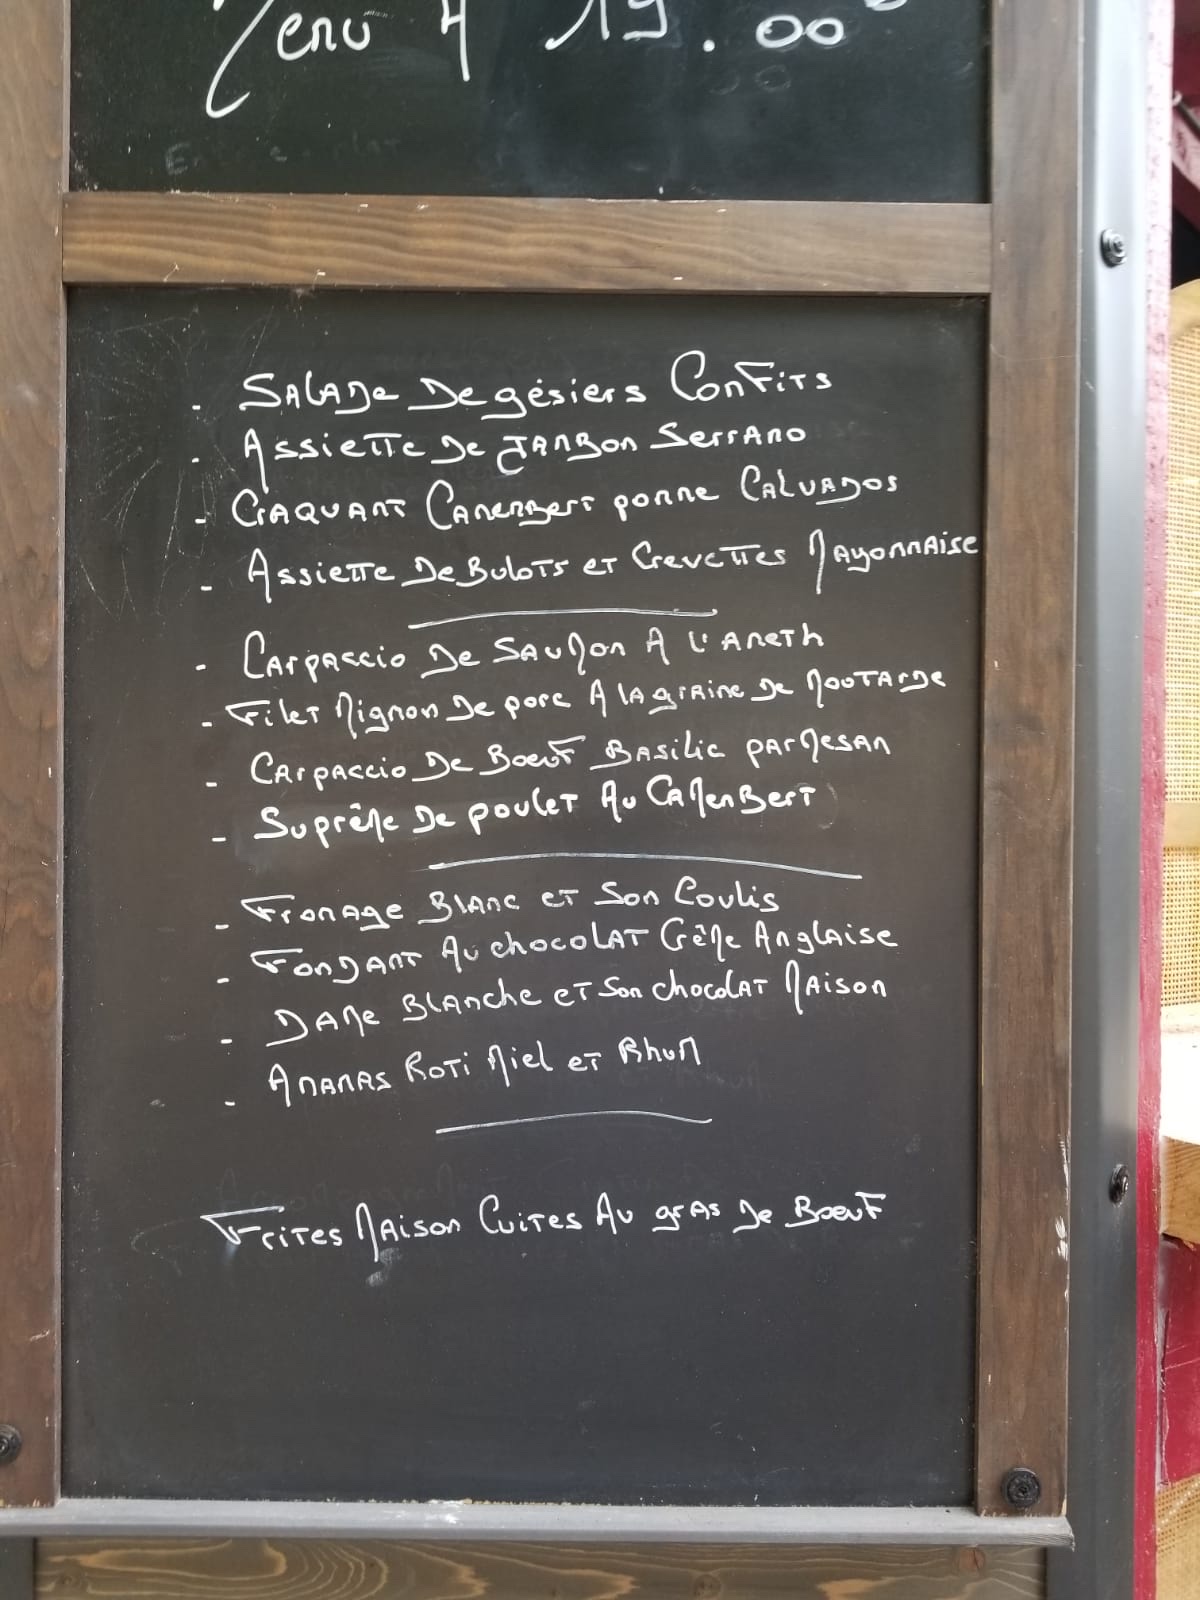 Menu A 19.00
- Salade De gésiers Confits
- Assiette De Jambon Serrano
- Craquant Camembert pomme Calvados
- Assiette De Bulots et Crevettes Mayonnaise
- Carpaccio De Saumon A l'Aneth
- Filet Mignon De porc A la graine De Moutarde
- Carpaccio De Boeuf Basilic parmesan
- Suprême De poulet Au Camembert
- Fromage Blanc et Son Coulis
- Fondant Au chocolat Crême Anglaise
- Dame Blanche et Son chocolat Maison
- Ananas Roti Miel et Rhum
Frites Maison Cuites Au gras De Boeuf